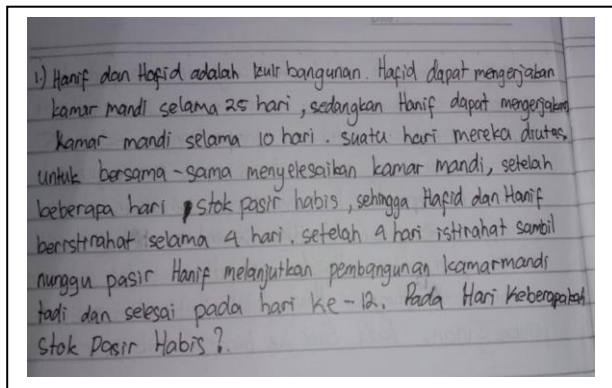 1.) Hanif dan Hafid adalah kuli bangunan. Hafid dapat mengerjakan
kamar mandi selama 25 hari, sedangkan Hanif dapat mengerjakan
kamar mandi selama 10 hari. suatu hari mereka diutus
untuk bersama-sama menyelesaikan kamar mandi, setelah
beberapa hari stok pasir habis, sehingga Hafid dan Hanif
beristirahat selama 4 hari. setelah 4 hari istirahat sambil
nunggu pasir Hanif melanjutkan pembangunan kamarmandi
tadi dan selesai pada hari ke-12. Pada Hari Keberapakah
Stok Pasir Habis?